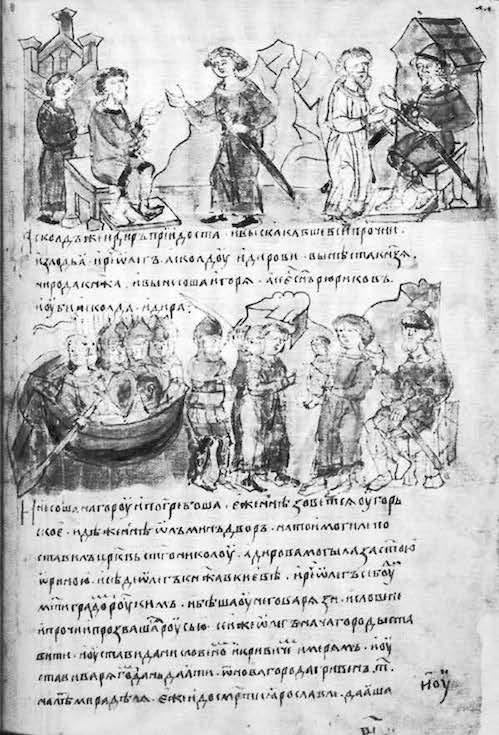 Асколдъ же и диръ приидоста . и выскакавше вси прочии
из лодьа . и реч ѡлегъ . асколдоу и дирови . вы нѣста кнзѧ .
ни рода кнжа . и вынесоша игорѧ . а се есть снъ рюриковъ .
и оуби асколда . и дира :
И несоша на гороу и погребоша . еже ннѣ зоветсѧ оугорь
ское . идѣже ннѣ ѡлъминъ дворъ . на тои могиле по
ставилъ црквь стго николоу . а дирова могыла за стою
ѡриною . и сѣде ѡлегъ кнжа в киевѣ . и реч ѡлегъ се боуди
мти градом роускимъ . и бѣша оу него варѧзи . и словене
и прочии прозвашасѧ роусью . се же ѡлегъ нача городы ста
вити . и оустави дани словеном и кривичем и мерям . и оу
стави варѧгом дань даѧти . ѿ новагорода гривен . т .
на лѣт мира дѣлѧ . еже и до смерти ярославлѧ . даѧша